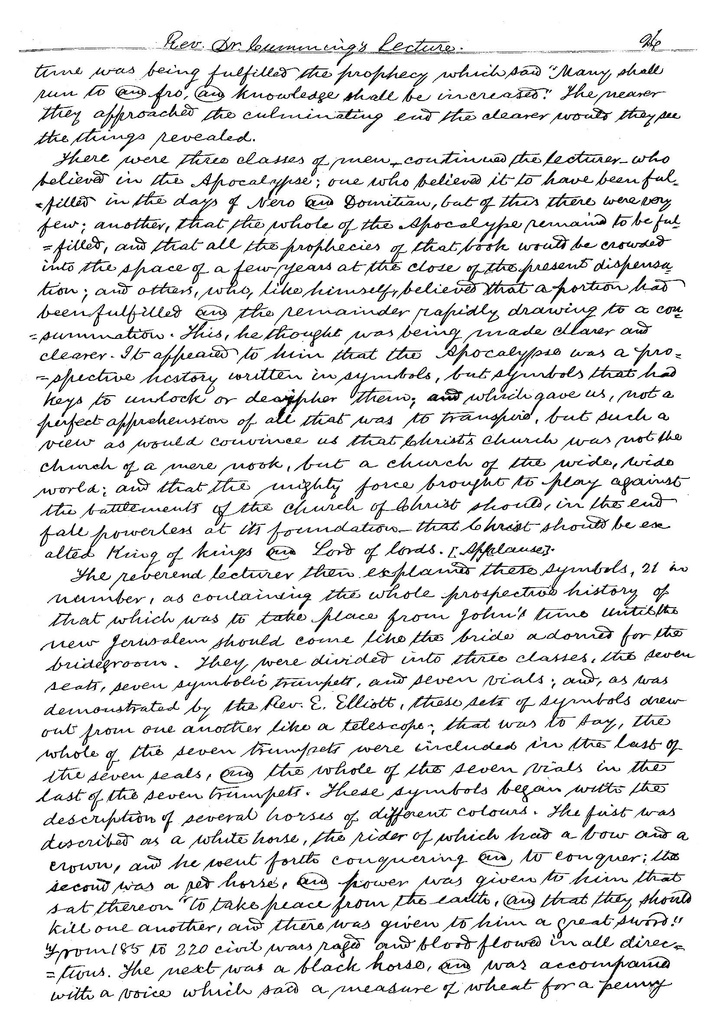 Rev. Dr. Cumming's Lecture. 26
time was being fulfilled the prophecy which said "Many shall
run to an fro, an knowledge shall be increased." The nearer
they approached the culminating end the clearer would they see
the things revealed.
There were three classes of men, continued the lecturer who
believed in the Apocalypse; one who believed it to have been ful-
=filled in the days of Nero an Domitian, but of this there were very
few; another, that the whole of the Apocalypse remain to be ful-
=filled, and that all the prophecies of that book would be crowded
into the space of a few years at the close of the present dispensa-
tion; and others, who, like himself, believed that a portion had
been fulfilled an the remainder rapidly drawing to a con-
=summation. This, he thought was being made clearer and
clearer. It appeared to him that the Apocalypse was a pro=
=spective history written in symbols, but symbols that had
keys to unlock or decipher them; and which gave us, not a
perfect apprehension of all that was to transpire, but such a
view as would convince us that Christ's church was not the
church of a mere nook, but a church of the wide, wide
world; and that the mighty force brought to play against
the battlements of the church of Christ should, in the end
fall powerless at its foundation that Christ should be ex
alted King of kings an Lord of lords. [Applause].
The reverend lecturer then explained these symbols, 21 in
number, as containing the whole prospective history of
that which was to take place from John's time until the
new Jerusalem should come like the bride adorned for the
bridegroom. They were divided into three classes, the seven
seals, seven symbolic trumpets, and seven vials; and, as was
demonstrated by the Rev. E. Elliott, these sets of symbols drew
out from one another like a telescope; that was to say, the
whole of the seven trumpets were included in the last of
the seven seals, an the whole of the seven vials in the
last of the seven trumpets. These symbols began with the
description of several horses of different colours. The first was
described as a white horse, the rider of which had a bow and a
crown, and he went forth conquering an to conquer; the
second was a red horse, an power was given to him that
sat thereon "to take peace from the earth, an that they should
kill one another, and there was given to him a great sword."
From 185 to 220 civil wars raged and blood flowed in all direc=
=tions. The next was a black horse, an was accompanied
with a voice which said a measure of wheat for a penny